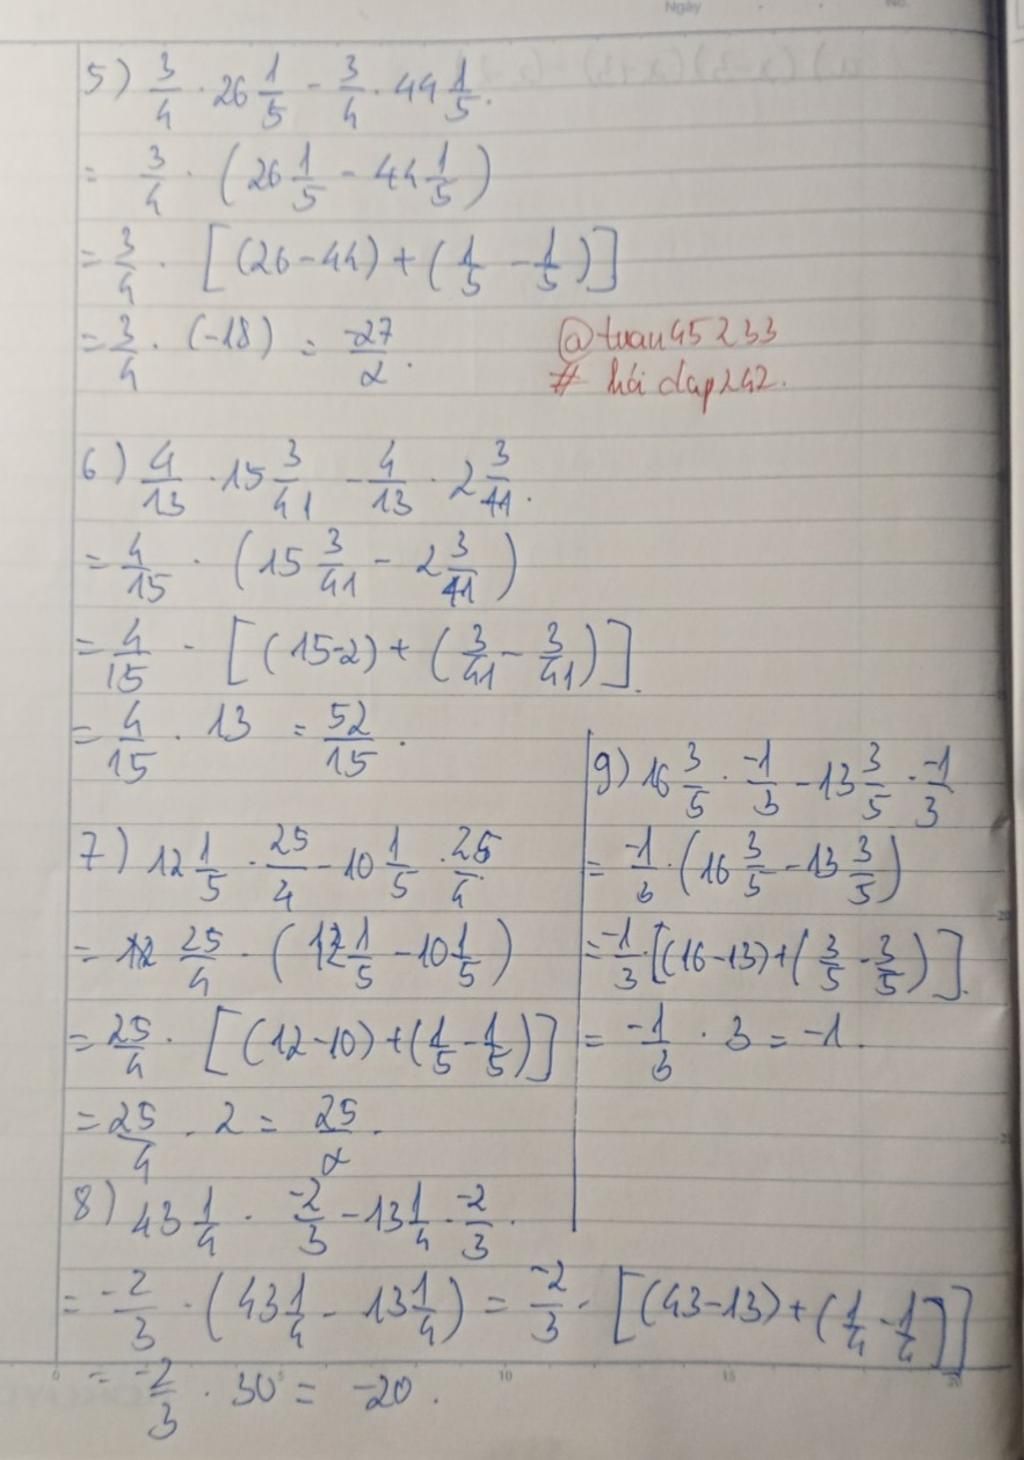 Ngày No.
5) 3/4 . 26 1/5 - 3/4 . 44 1/5.
= 3/4 . (26 1/5 - 44 1/5)
= 3/4 . [(26-44)+(1/5 - 1/5)]
= 3/4 . (-18) = -27/2.
@tuan45233
# hỏi đap247.
6) 4/13 . 15 3/41 - 4/13 . 2 3/41.
= 4/15 . (15 3/41 - 2 3/41)
= 4/15 - [(15-2)+(3/41 - 3/41)].
= 4/15 . 13 = 52/15.
7) 12 1/5 . 25/4 - 10 1/5 . 25/4
= 25/4 . (12 1/5 - 10 1/5)
= 25/4 . [(12-10)+(1/5 - 1/5)]
= 25/4 . 2 = 25/2.
8) 43 1/4 . -2/3 - 13 1/4 . -2/3.
= -2/3 . (43 1/4 - 13 1/4) = -2/3 . [(43-13)+(1/4 - 1/4)]
= -2/3 . 30 = -20.
9) 16 3/5 . -1/3 - 13 3/5 . -1/3
= -1/3 . (16 3/5 - 13 3/5)
= -1/3 . [(16-13)+(3/5 - 3/5)].
= -1/3 . 3 = -1.
0 5 10 15 20